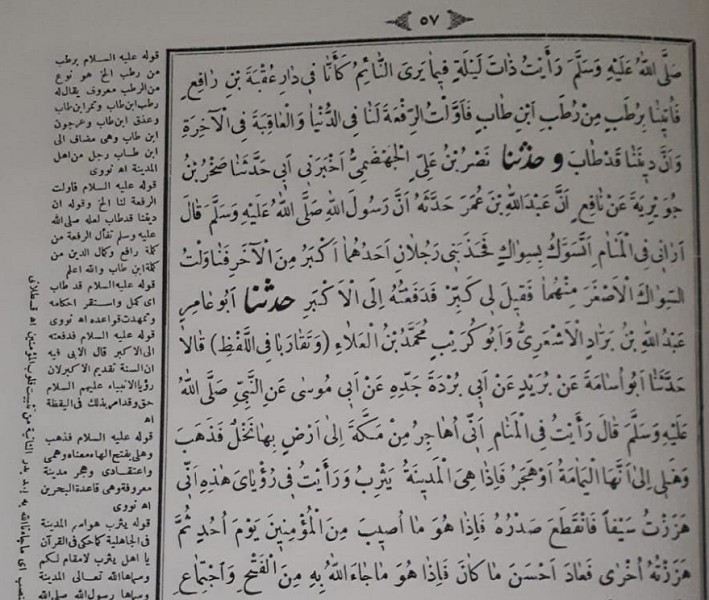 ٥٧
صَلَّى اللهُ عَلَيْهِ وَسَلَّمَ رَأَيْتُ ذَاتَ لَيْلَةٍ فِيمَا يَرَى النَّائِمُ كَأَنَّا فِي دَارِ عُقْبَةَ بْنِ رَافِعٍ
فَأُتِينَا بِرُطَبٍ مِنْ رُطَبِ ابْنِ طَابٍ فَأَوَّلْتُ الرِّفْعَةَ لَنَا فِي الدُّنْيَا وَالْعَاقِبَةَ فِي الْآخِرَةِ
وَأَنَّ دِينَنَا قَدْ طَابَ وحدثنا نَصْرُ بْنُ عَلِيٍّ الْجَهْضَمِيُّ أَخْبَرَنِي أَبِي حَدَّثَنَا صَخْرُ بْنُ
جُوَيْرِيَةَ عَنْ نَافِعٍ أَنَّ عَبْدَ اللهِ بْنَ عُمَرَ حَدَّثَهُ أَنَّ رَسُولَ اللهِ صَلَّى اللهُ عَلَيْهِ وَسَلَّمَ قَالَ
أَرَانِي فِي الْمَنَامِ أَتَسَوَّكُ بِسِوَاكٍ فَجَذَبَنِي رَجُلَانِ أَحَدُهُمَا أَكْبَرُ مِنَ الْآخَرِ فَنَاوَلْتُ
السِّوَاكَ الْأَصْغَرَ مِنْهُمَا فَقِيلَ لِي كَبِّرْ فَدَفَعْتُهُ إِلَى الْأَكْبَرِ حدثنا أَبُو عَامِرٍ
عَبْدُ اللهِ بْنُ بَرَّادٍ الْأَشْعَرِيُّ وَأَبُو كُرَيْبٍ مُحَمَّدُ بْنُ الْعَلَاءِ (وَتَقَارَبَا فِي اللَّفْظِ) قَالَا
حَدَّثَنَا أَبُو أُسَامَةَ عَنْ بُرَيْدٍ عَنْ أَبِي بُرْدَةَ جَدِّهِ عَنْ أَبِي مُوسَى عَنِ النَّبِيِّ صَلَّى اللهُ
عَلَيْهِ وَسَلَّمَ قَالَ رَأَيْتُ فِي الْمَنَامِ أَنِّي أُهَاجِرُ مِنْ مَكَّةَ إِلَى أَرْضٍ بِهَا نَخْلٌ فَذَهَبَ
وَهَلِي إِلَى أَنَّهَا الْيَمَامَةُ أَوْ هَجَرُ فَإِذَا هِيَ الْمَدِينَةُ يَثْرِبُ وَرَأَيْتُ فِي رُؤْيَايَ هٰذِهِ أَنِّي
هَزَزْتُ سَيْفًا فَانْقَطَعَ صَدْرُهُ فَإِذَا هُوَ مَا أُصِيبَ مِنَ الْمُؤْمِنِينَ يَوْمَ أُحُدٍ ثُمَّ
هَزَزْتُهُ أُخْرَى فَعَادَ أَحْسَنَ مَا كَانَ فَإِذَا هُوَ مَا جَاءَ اللهُ بِهِ مِنَ الْفَتْحِ وَاجْتِمَاعِ
قوله عليه السلام برطب
من رطب الخ هو نوع
من الرطب معروف يقال له
رطب ابن طاب وتمر ابن طاب
وعذق ابن طاب وعرجون
ابن طاب وهي مضاف الى
ابن طاب رجل من اهل
المدينة اه نووى
قوله عليه السلام فاولت
الرفعة لنا الخ وقوله ان
ديننا قدطاب لعله صلى الله
عليه وسلم تفأل الرفعة من
كلمة رافع وكمال الدين من
كلمة ابن طاب والله اعلم
قوله عليه السلام قد طاب
اى كمل واستقر احكامه
وتمهدت قواعده اه نووى
قوله عليه السلام فدفعته
الى الاكبر قال الابى فيه
ان السنة تقديم الاكبر لان
رؤيا الانبياء عليهم السلام
حق وقد امر بذلك فى اليقظة
اه
قوله عليه السلام فذهب
وهلى بفتح الهاء معناه وهمى
واعتقادى وهجر مدينة
معروفة وهى قاعدة البحرين
اه نووى
قوله يثرب هو اسم المدينة
فى الجاهلية كما حكى فى القرآن
يا اهل يثرب لا مقام لكم
وسماها الله تعالى المدينة
وسماها رسول الله صلى الله